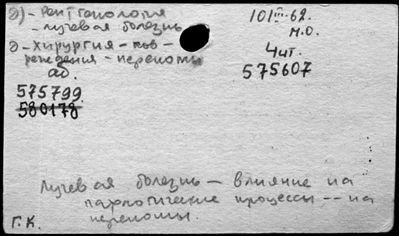 д) - Рентгенология
- лучевая болезнь
д - Хирургия - пов-
реждения - переломы
аб.
575799
580178
101 III-62.
м.о.
4 чит.
575607
Лучевая болезнь - влияние на
патологические процессы -- на
переломы.
Г.К.